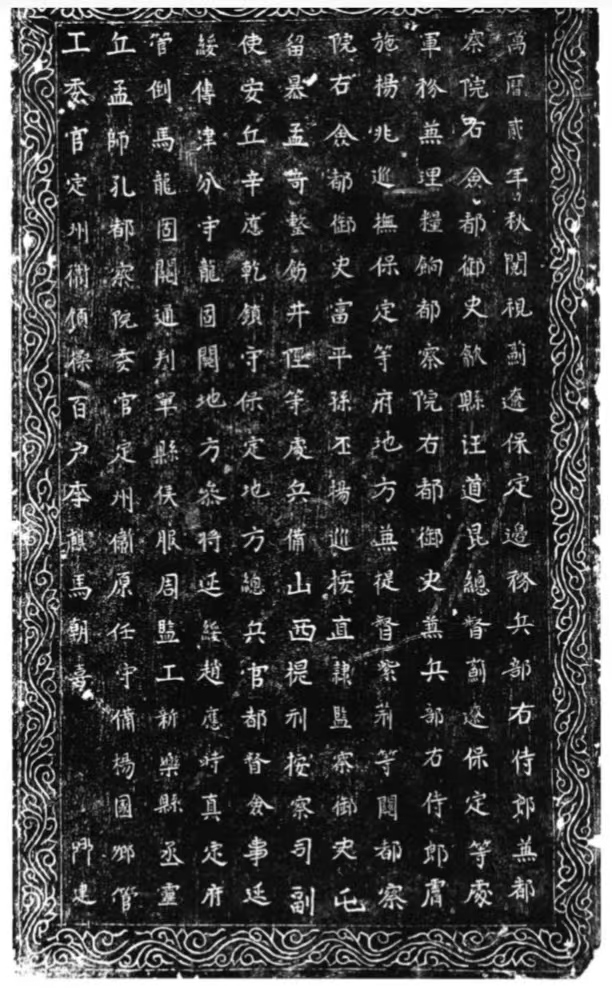 萬曆貳年秋閱視薊遼保定邊務兵部右侍郎兼都
察院右僉都御史歙縣汪道昆總督薊遼保定等處
軍務兼理糧餉都察院右都御史兼兵部右侍郎膚
施楊兆巡撫保定等府地方兼提督紫荊等關都察
院右僉都御史富平孫丕揚巡按直隸監察御史屯
留暴孟奇整飭井陘等處兵備山西提刑按察司副
使安丘辛應乾鎮守保定地方總兵官都督僉事延
綏傅津分守龍固關地方參將延綏趙應時真定府
管倒馬龍固關通判單縣侯服周監工新樂縣丞靈
丘孟師孔都察院委官定州衛原任守備楊國鄉管
工委官定州衛領操百戶李麒馬朝 鼎建